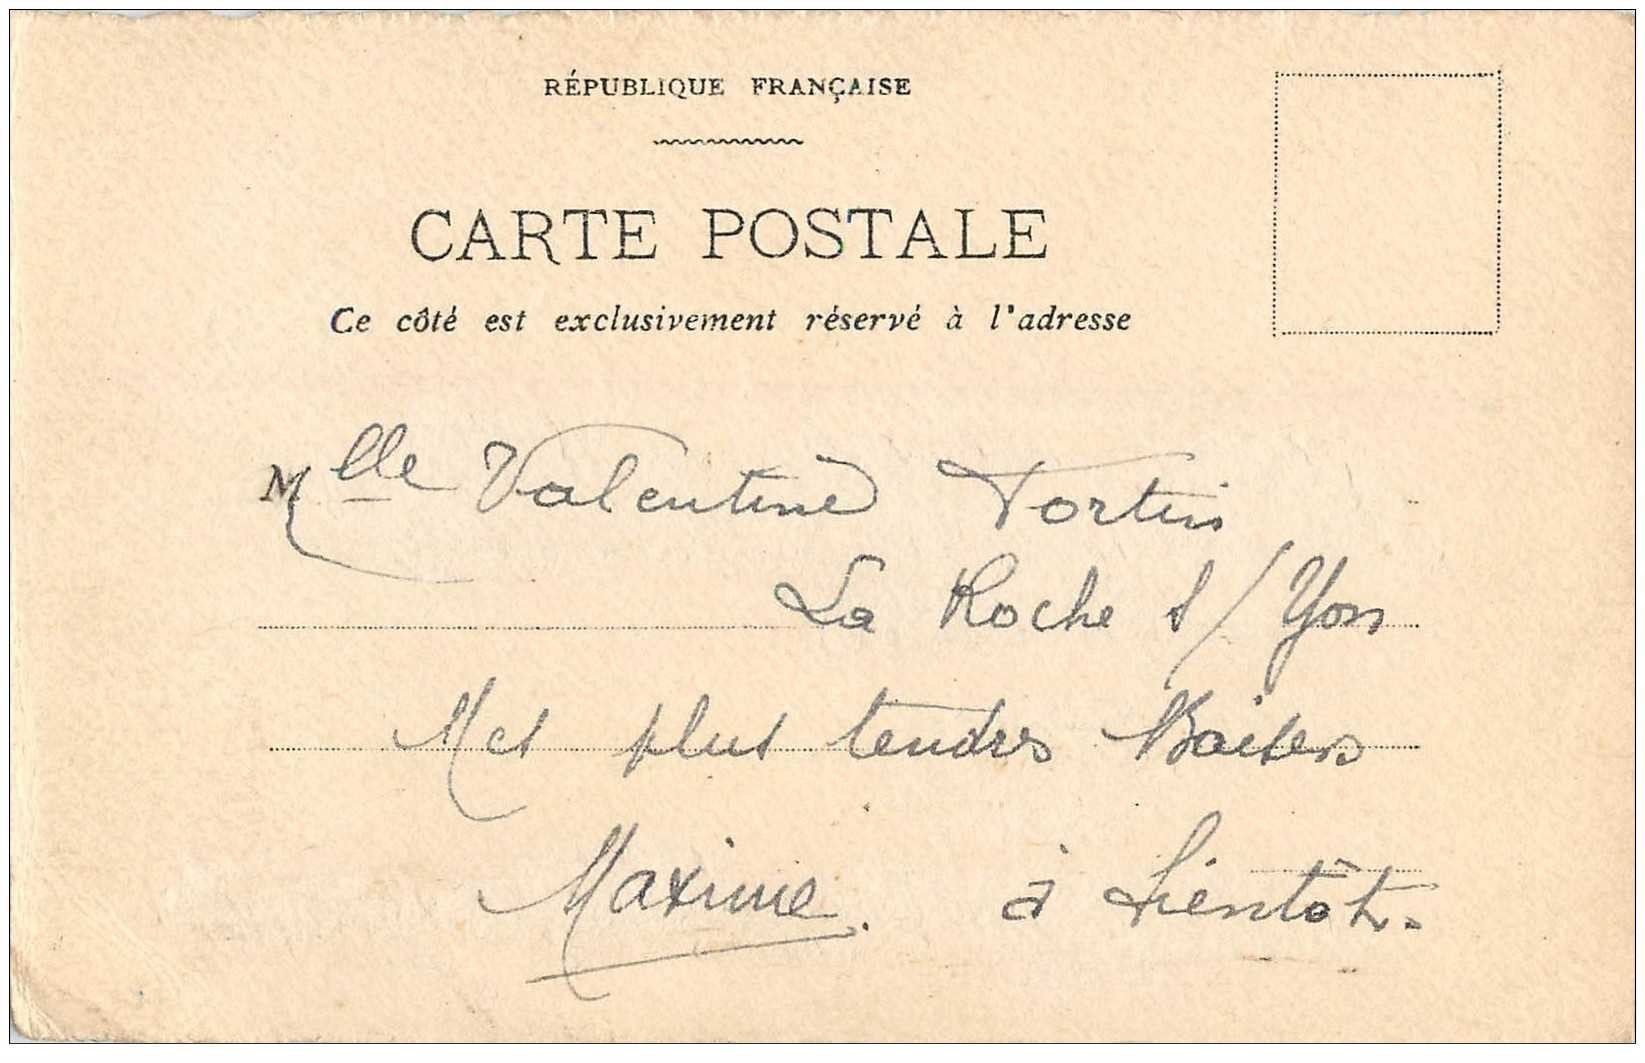 RÉPUBLIQUE FRANÇAISE
CARTE POSTALE
Ce côté est exclusivement réservé à l'adresse
Mlle Valentine Tortin
La Roche s/ Yon
Mes plus tendres Baisers
Maxime. à bientôt.